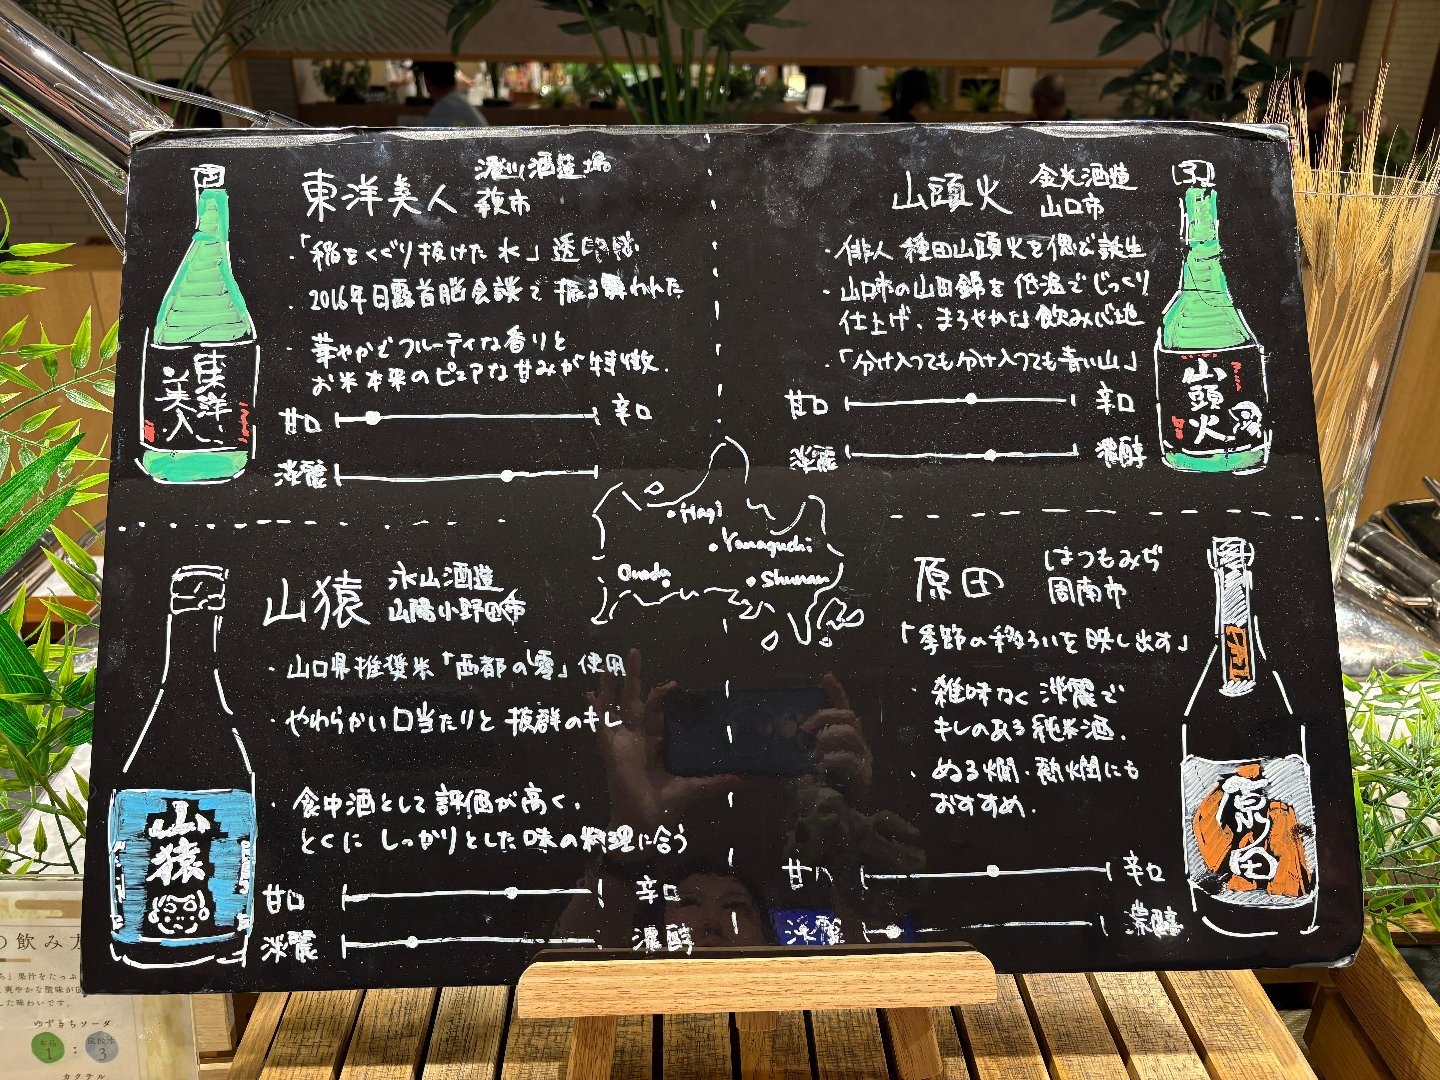 東洋美人
澄川酒造場
萩市
・「稲をくぐり抜けた水」
・2016年日露首脳会談で振る舞われた
・華やかでフルーティな香りと
お米本来のピュアな甘みが特徴.
甘口 辛口
淡麗
東洋美人
山頭火
金光酒造
山口市
・俳人 種田山頭火を偲び誕生
・山口市の山田錦を低温でじっくり
仕上げ、まろやかな飲み心地
・「分け入つても分け入つても青い山」
甘口 辛口
淡麗 濃醇
山頭火
Hagi
Yamaguchi
Onoda
Shunan
山猿
永山酒造
山陽小野田市
・山口県推奨米「西都の雫」使用
・やわらかい口当たりと抜群のキレ
・食中酒として評価が高く、
とくにしっかりとした味の料理に合う
甘口 辛口
淡麗 濃醇
山猿
原田
はつもみぢ
周南市
「季節の移ろいを映し出す」
・雑味なく淡麗で
キレのある純米酒.
・ぬる燗・熱燗にも
おすすめ.
甘口 辛口
淡麗 濃醇
原田
の飲み方
」果汁をたっぷ
爽やかな酸味が広
した味わいです。
ゆずきちソーダ
本品 1 : 3
カクテル